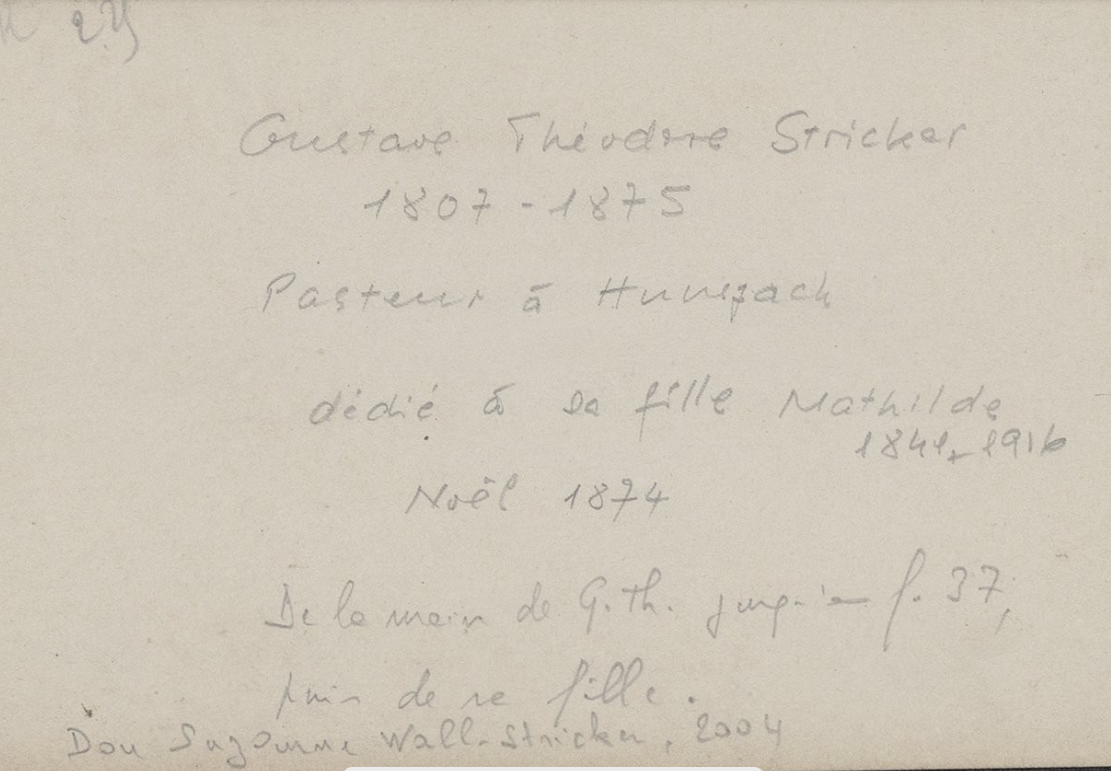 Gustave Théodore Stricker
1807 - 1875
Pasteur à Hunspach
dédié à sa fille Mathilde
1841-1916
Noël 1874
De la main de G. Th. jusqu'au f. 37,
puis de sa fille.
Don Suzanne Wall-Stricker, 2004